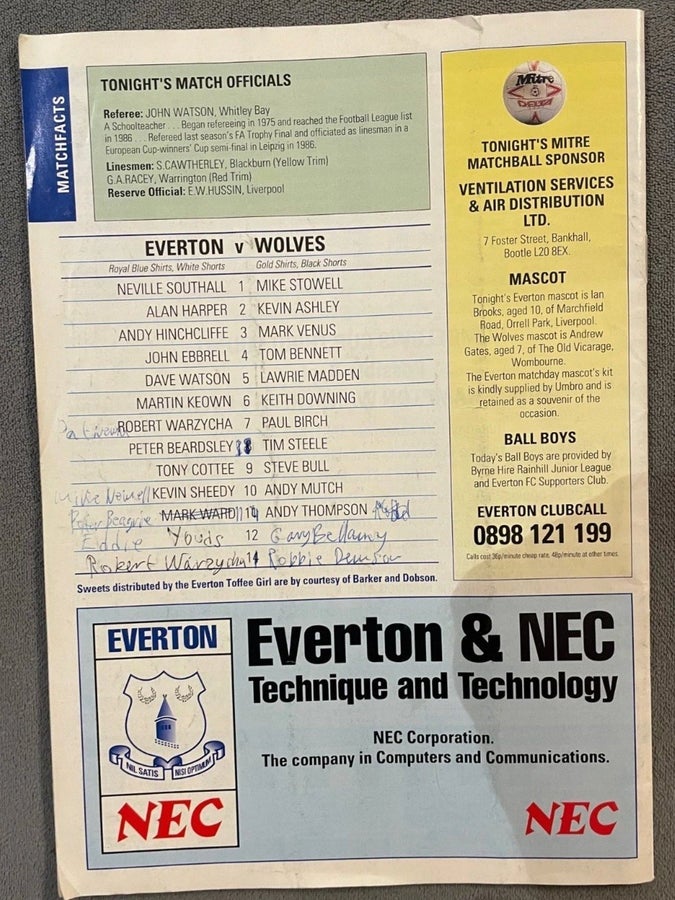 MATCHFACTS
TONIGHT'S MATCH OFFICIALS
Referee: JOHN WATSON, Whitley Bay
A Schoolteacher . . . Began refereeing in 1975 and reached the Football League list
in 1986 . . . Refereed last season's FA Trophy Final and officiated as linesman in a
European Cup-winners' Cup semi-final in Leipzig in 1986.
Linesmen: S.CAWTHERLEY, Blackburn (Yellow Trim)
G.A.RACEY, Warrington (Red Trim)
Reserve Official: E.W.HUSSIN, Liverpool
EVERTON v WOLVES
Royal Blue Shirts, White Shorts Gold Shirts, Black Shorts
NEVILLE SOUTHALL 1 MIKE STOWELL
ALAN HARPER 2 KEVIN ASHLEY
ANDY HINCHCLIFFE 3 MARK VENUS
JOHN EBBRELL 4 TOM BENNETT
DAVE WATSON 5 LAWRIE MADDEN
MARTIN KEOWN 6 KEITH DOWNING
ROBERT WARZYCHA 7 PAUL BIRCH
PETER BEARDSLEY 8 TIM STEELE
TONY COTTEE 9 STEVE BULL
Mike Newell KEVIN SHEEDY 10 ANDY MUTCH
Peter Beagrie MARK WARD 11 ANDY THOMPSON
Eddie Youds 12 Gary Bellamy
Robert Warzycha 14 Robbie Dennison
Sweets distributed by the Everton Toffee Girl are by courtesy of Barker and Dobson.
Mitre
DELTA
TONIGHT'S MITRE
MATCHBALL SPONSOR
VENTILATION SERVICES
& AIR DISTRIBUTION
LTD.
7 Foster Street, Bankhall,
Bootle L20 8EX.
MASCOT
Tonight's Everton mascot is Ian
Brooks, aged 10, of Marchfield
Road, Orrell Park, Liverpool.
The Wolves mascot is Andrew
Gates, aged 7, of The Old Vicarage,
Wombourne.
The Everton matchday mascot's kit
is kindly supplied by Umbro and is
retained as a souvenir of the
occasion.
BALL BOYS
Today's Ball Boys are provided by
Byrne Hire Rainhill Junior League
and Everton FC Supporters Club.
EVERTON CLUBCALL
0898 121 199
Calls cost 36p/minute cheap rate, 48p/minute at other times.
EVERTON
NIL SATIS NISI OPTIMUM
NEC
Everton & NEC
Technique and Technology
NEC Corporation.
The company in Computers and Communications.
NEC